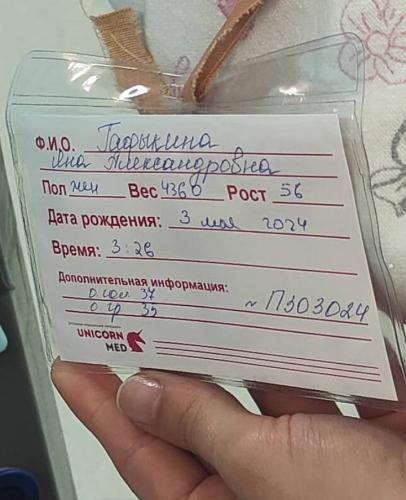 Ф.И.О. Гафыкина
Яна Александровна
Пол жен Вес 4360 Рост 56
Дата рождения: 3 мая 2024
Время: 3:26
Дополнительная информация:
о гол 37
о гр 35
~ П303024
UNICORN
MED